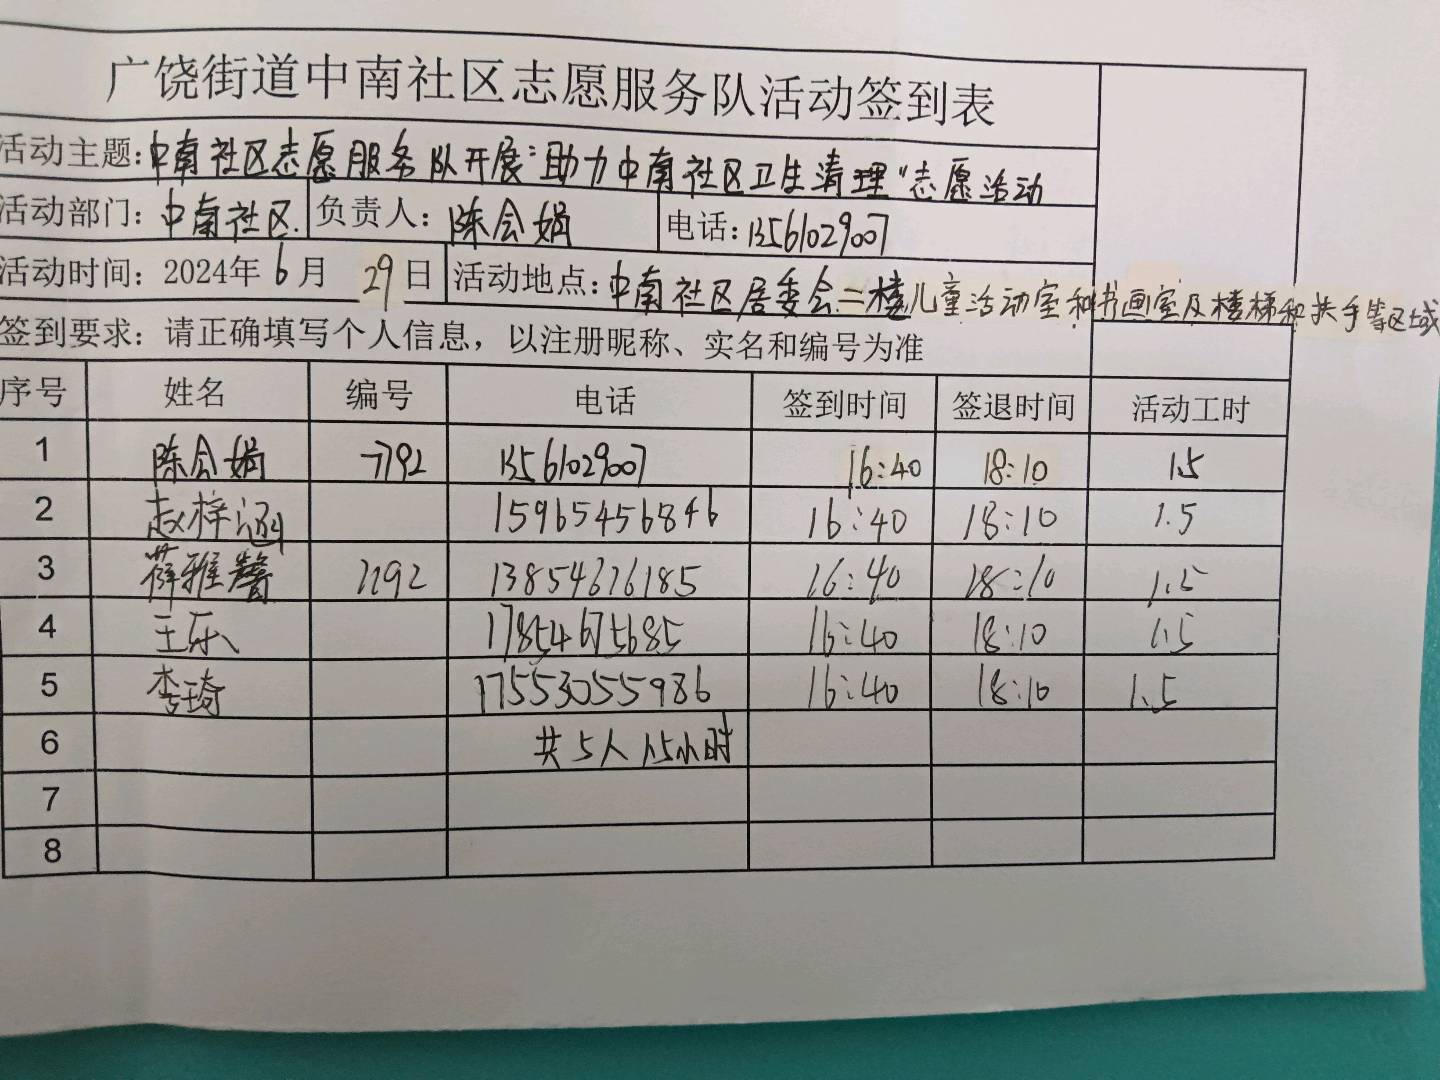 广饶街道中南社区志愿服务队活动签到表
活动主题:中南社区志愿服务队开展"助力中南社区卫生清理"志愿活动
活动部门:中南社区. 负责人:陈会娟 电话:13561029007
活动时间:2024年6月29日 活动地点:中南社区居委会二楼儿童活动室和书画室及楼梯和扶手等区域
签到要求:请正确填写个人信息,以注册昵称、实名和编号为准
序号 姓名 编号 电话 签到时间 签退时间 活动工时
1 陈会娟 7792 13561029007 16:40 18:10 1.5
2 赵梓涵 15965456846 16:40 18:10 1.5
3 薛雅馨 13854676185 16:40 18:10 1.5
4 王乐 17854675685 16:40 18:10 1.5
5 李琦 17553055986 16:40 18:10 1.5
6 共5人 1.5小时
7
8